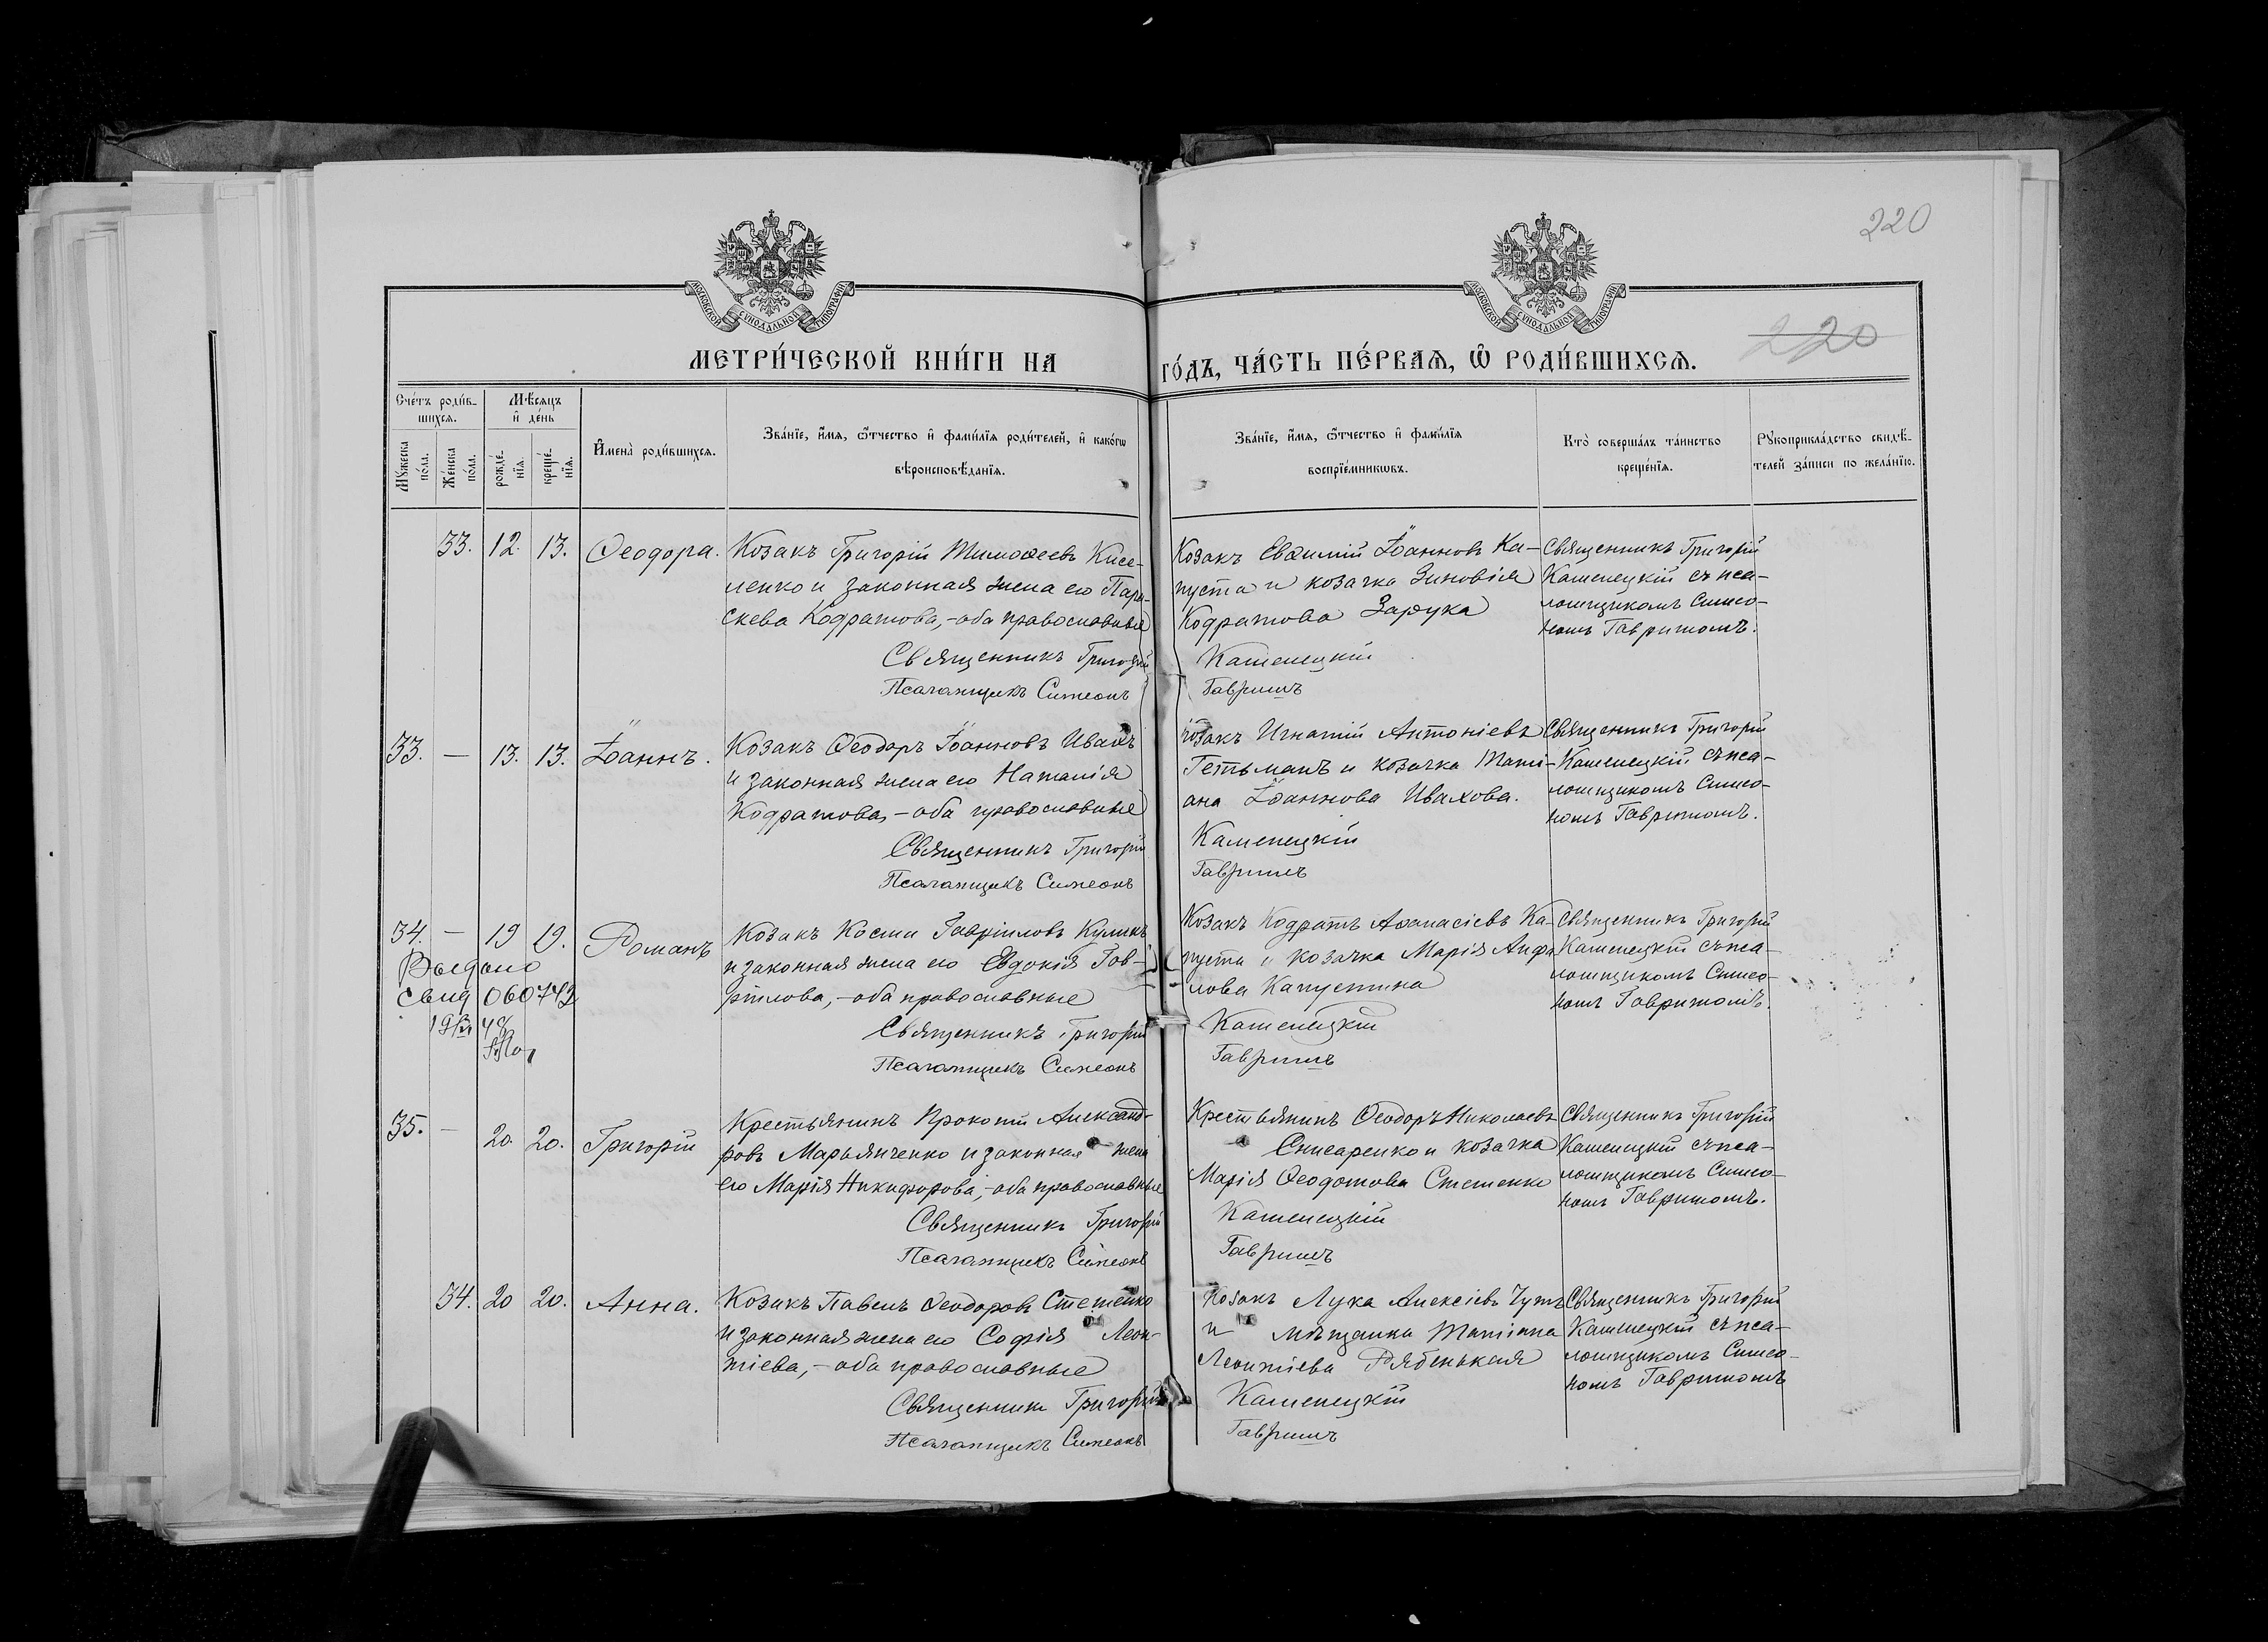 220
МОСКОВСКОЙ СѴНОДАЛЬНОЙ ТИПОГРАФІИ
МОСКОВСКОЙ СѴНОДАЛЬНОЙ ТИПОГРАФІИ
220
МЕТРИ́ЧЕСКОЙ КНИ́ГИ НА
ГО́ДЪ, ЧА́СТЬ ПЕ́РВАѦ, Ѡ҆ РОДИ́ВШИХСѦ.
Сче́тъ роди́в-
шихсѧ.
Мꙋ́жеска по́ла.
Же́нска по́ла.
Мѣ́сѧцъ
и҆ де́нь
рожде́-
нїѧ.
креще́-
нїѧ.
И҆мена̀ роди́вшихсѧ.
Зва́нїе, и҆́мѧ, ѻ҆́тчество и҆ фами́лїѧ роди́телей, и҆ како́гѡ
вѣроисповѣ́данїѧ.
Зва́нїе, и҆́мѧ, ѻ҆́тчество и҆ фами́лїѧ
воспрїе́мникѡвъ.
Кто̀ соверша́лъ та́инство
креще́нїѧ.
Рꙋкоприкла́дство свидѣ́-
телей за́писи по жела́нїю.
33. 12. 13. Ѳеодора.
Козакъ Григорій Тимоѳеевъ Кисе-
ленко и законная жена его Пара-
скева Кодратова, - оба православные
Священникъ Григорій Каменецкій
Псаломщикъ Симеонъ Гавришъ
Козакъ Евѳимій Іоанновъ Ка-
пуста и козачка Зиновія
Кодратова Зарука
Священникъ Григорій
Каменецкій съ пса-
ломщикомъ Симео-
номъ Гавришомъ.
33. — 13. 13. Іоаннъ.
Козакъ Ѳеодоръ Іоанновъ Ивахъ
и законная жена его Наталія
Кодратова, - оба православные
Священникъ Григорій Каменецкій
Псаломщикъ Симеонъ Гавришъ
Козакъ Игнатій Антоніевъ
Гетьманъ и козачка Тати-
ана Іоаннова Ивахова.
Священникъ Григорій
Каменецкій съ пса-
ломщикомъ Симео-
номъ Гавришомъ.
34. — 19 19. Романъ
Выдано
свид 060742
48
Козакъ Косма Гавріиловъ Куликъ
и законная жена его Евдокія Гав-
ріилова, - оба православные
Священникъ Григорій Каменецкій
Псаломщикъ Симеонъ Гавришъ
Козакъ Кодратъ Аѳанасіевъ Ка-
пуста и козачка Марія Анфи
лова Капустина
Священникъ Григорій
Каменецкій съ пса-
ломщикомъ Симео-
номъ Гавришомъ.
35. — 20. 20. Григорій
Крестьянинъ Прокопій Александ-
ровъ Марьянченко и законная жена
его Марія Никифорова, - оба православные
Священникъ Григорій Каменецкій
Псаломщикъ Симеонъ Гавришъ
Крестьянинъ Ѳеодоръ Николаевъ
Снисаренко и козачка
Марія Ѳеодотова Стешенко
Священникъ Григорій
Каменецкій съ пса-
ломщикомъ Симео-
номъ Гавришомъ.
34. 20 20. Анна.
Козакъ Павелъ Ѳеодоровъ Стешенко
и законная жена его Софія Леон-
тіева, - оба православные
Священникъ Григорій Каменецкій
Псаломщикъ Симеонъ Гавришъ
Козакъ Лука Алексіевъ Чутъ
и мѣщанка Татіана
Леонтіева Рябенькая
Священникъ Григорій
Каменецкій съ пса-
ломщикомъ Симео-
номъ Гавришомъ